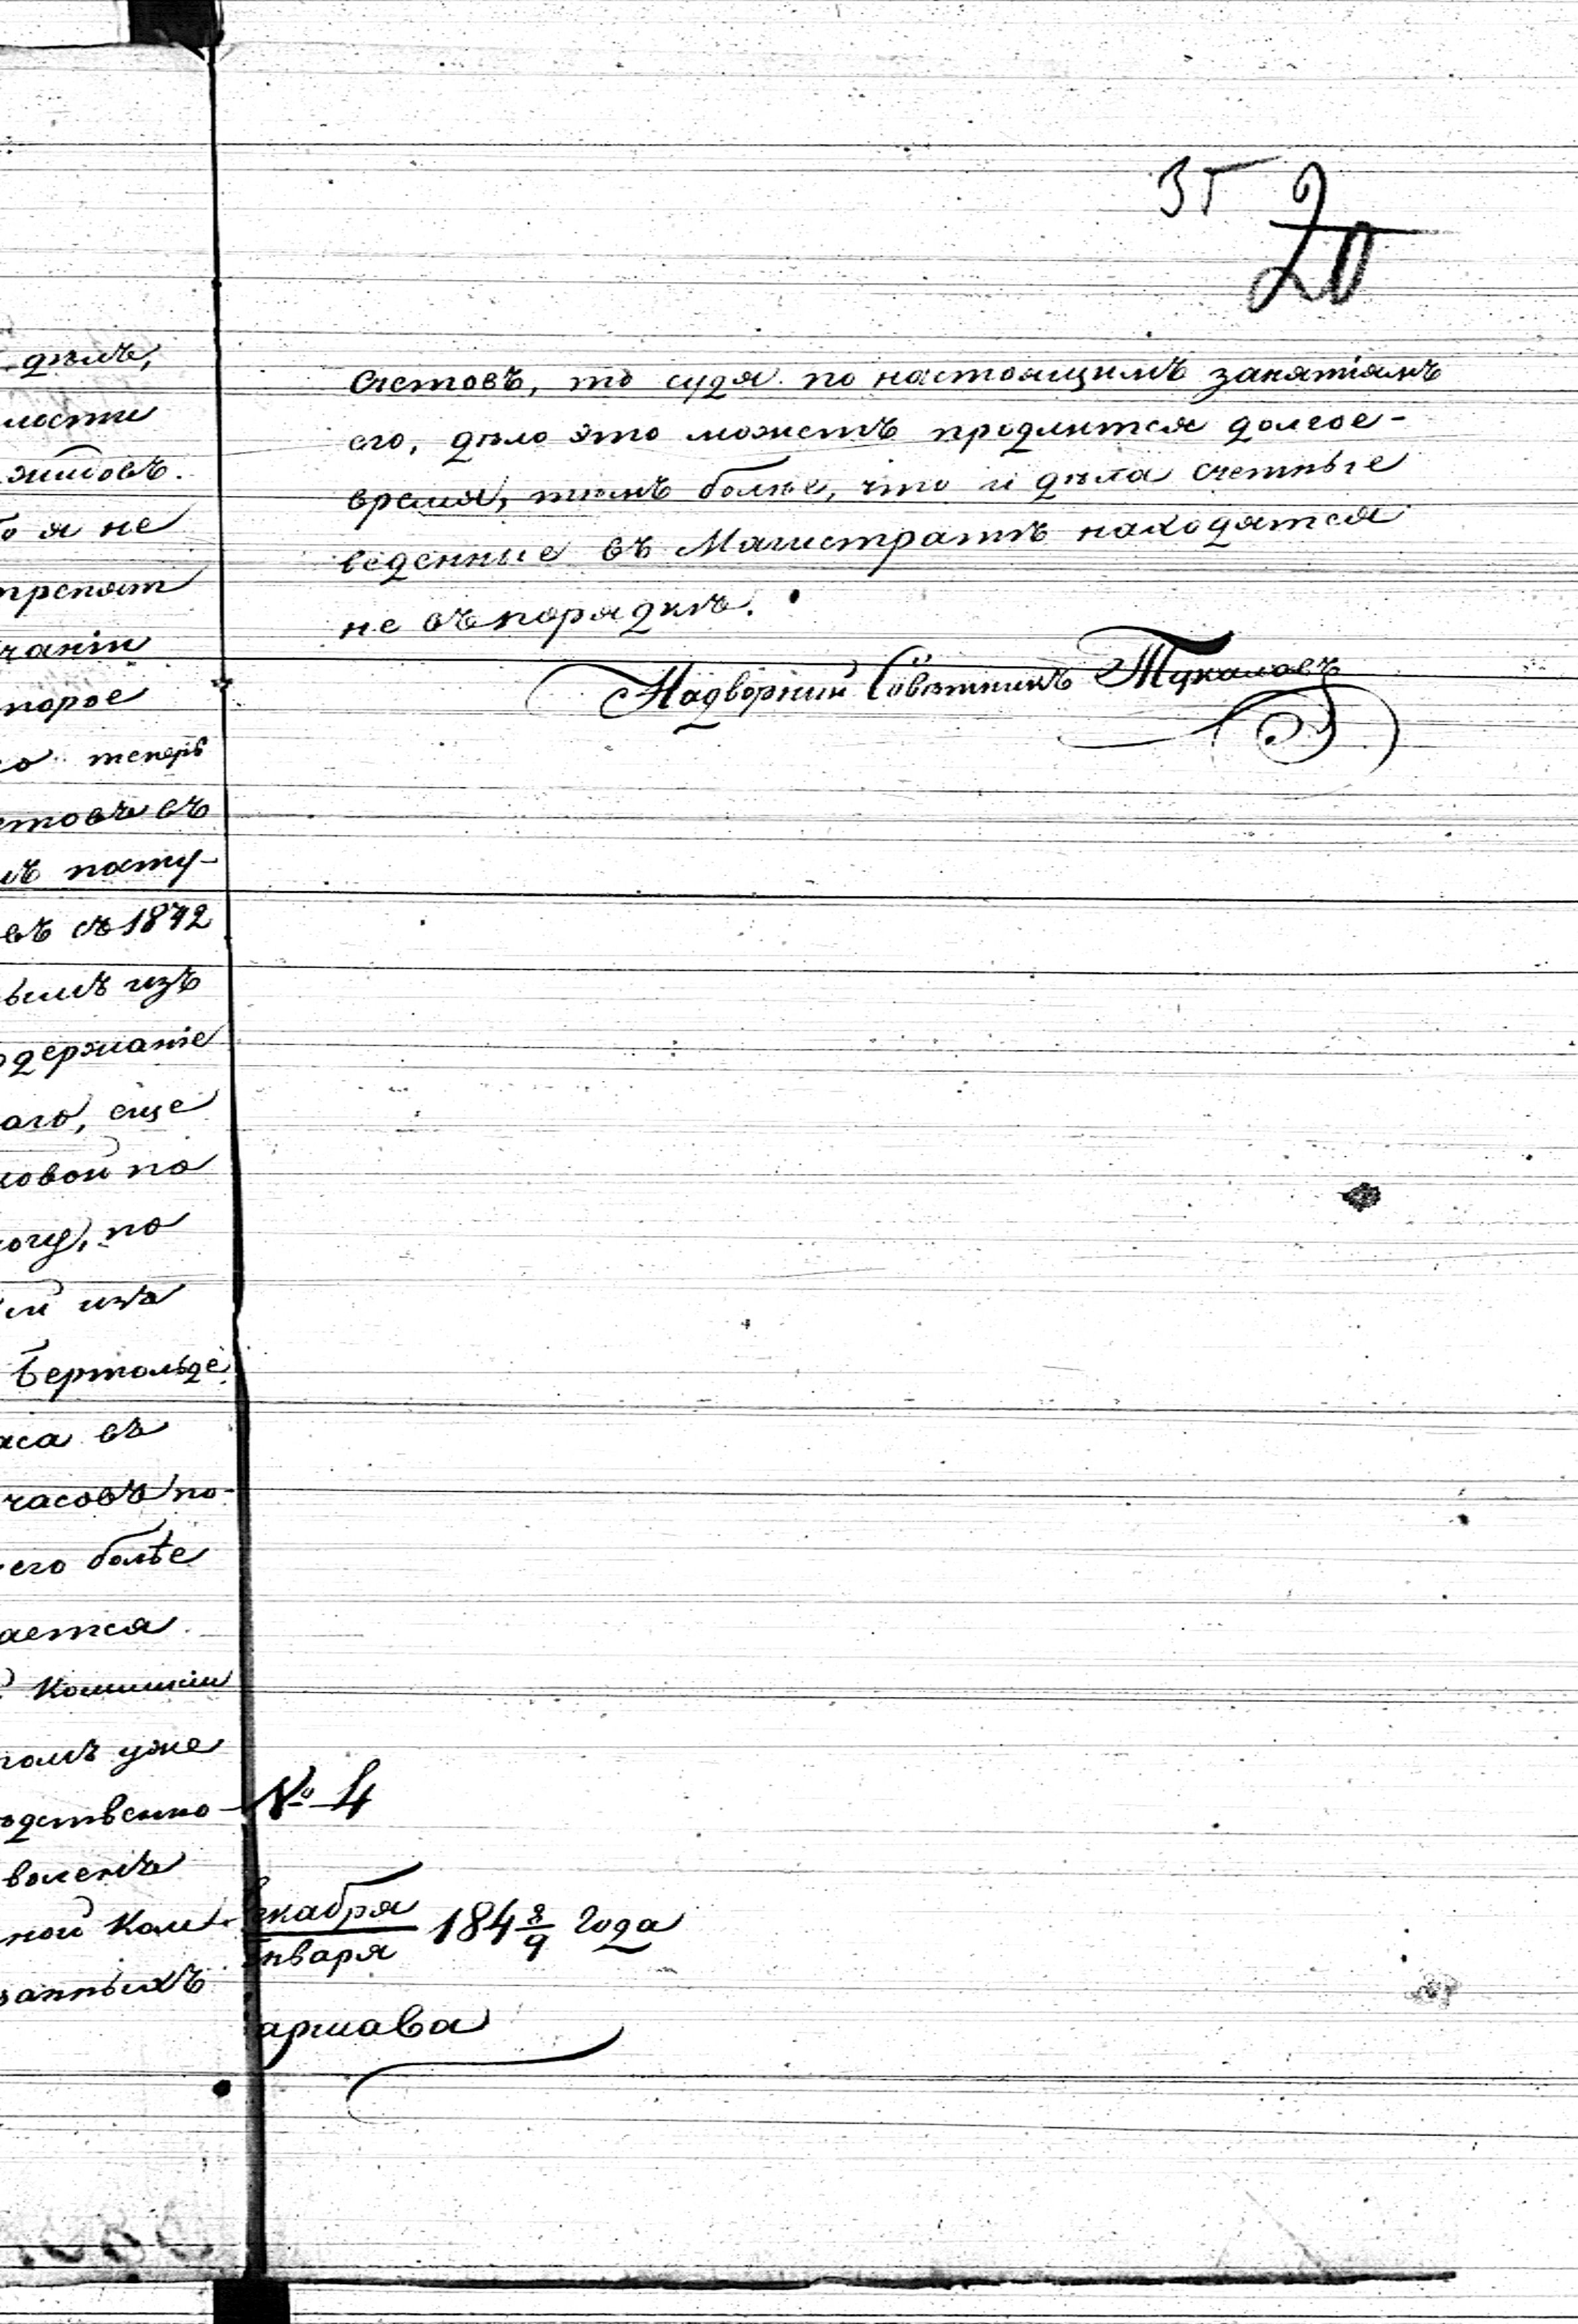 35
20
дѣлъ,
ности
житовъ.
я не
чаніи
торое
теперь
етовъ въ
въ съ 1842
изъ
одержаніе
аго, еще
ковой по
по
Бертольде
аса въ
часовъ по-
его болѣе
ается
Коммисіи
уже
дственно
ной Ком
занныхъ
счетовъ, то судя по настоящимъ занятіямъ
его, дѣло это можетъ продлится долгое-
время, тѣмъ болѣе, что и дѣла счетные
веденные въ Магистратѣ находятся
не въ порядкѣ.
Надворный Совѣтникъ Тукаловъ
№ 4
екабря
нваря 184 8/9 года
аршава